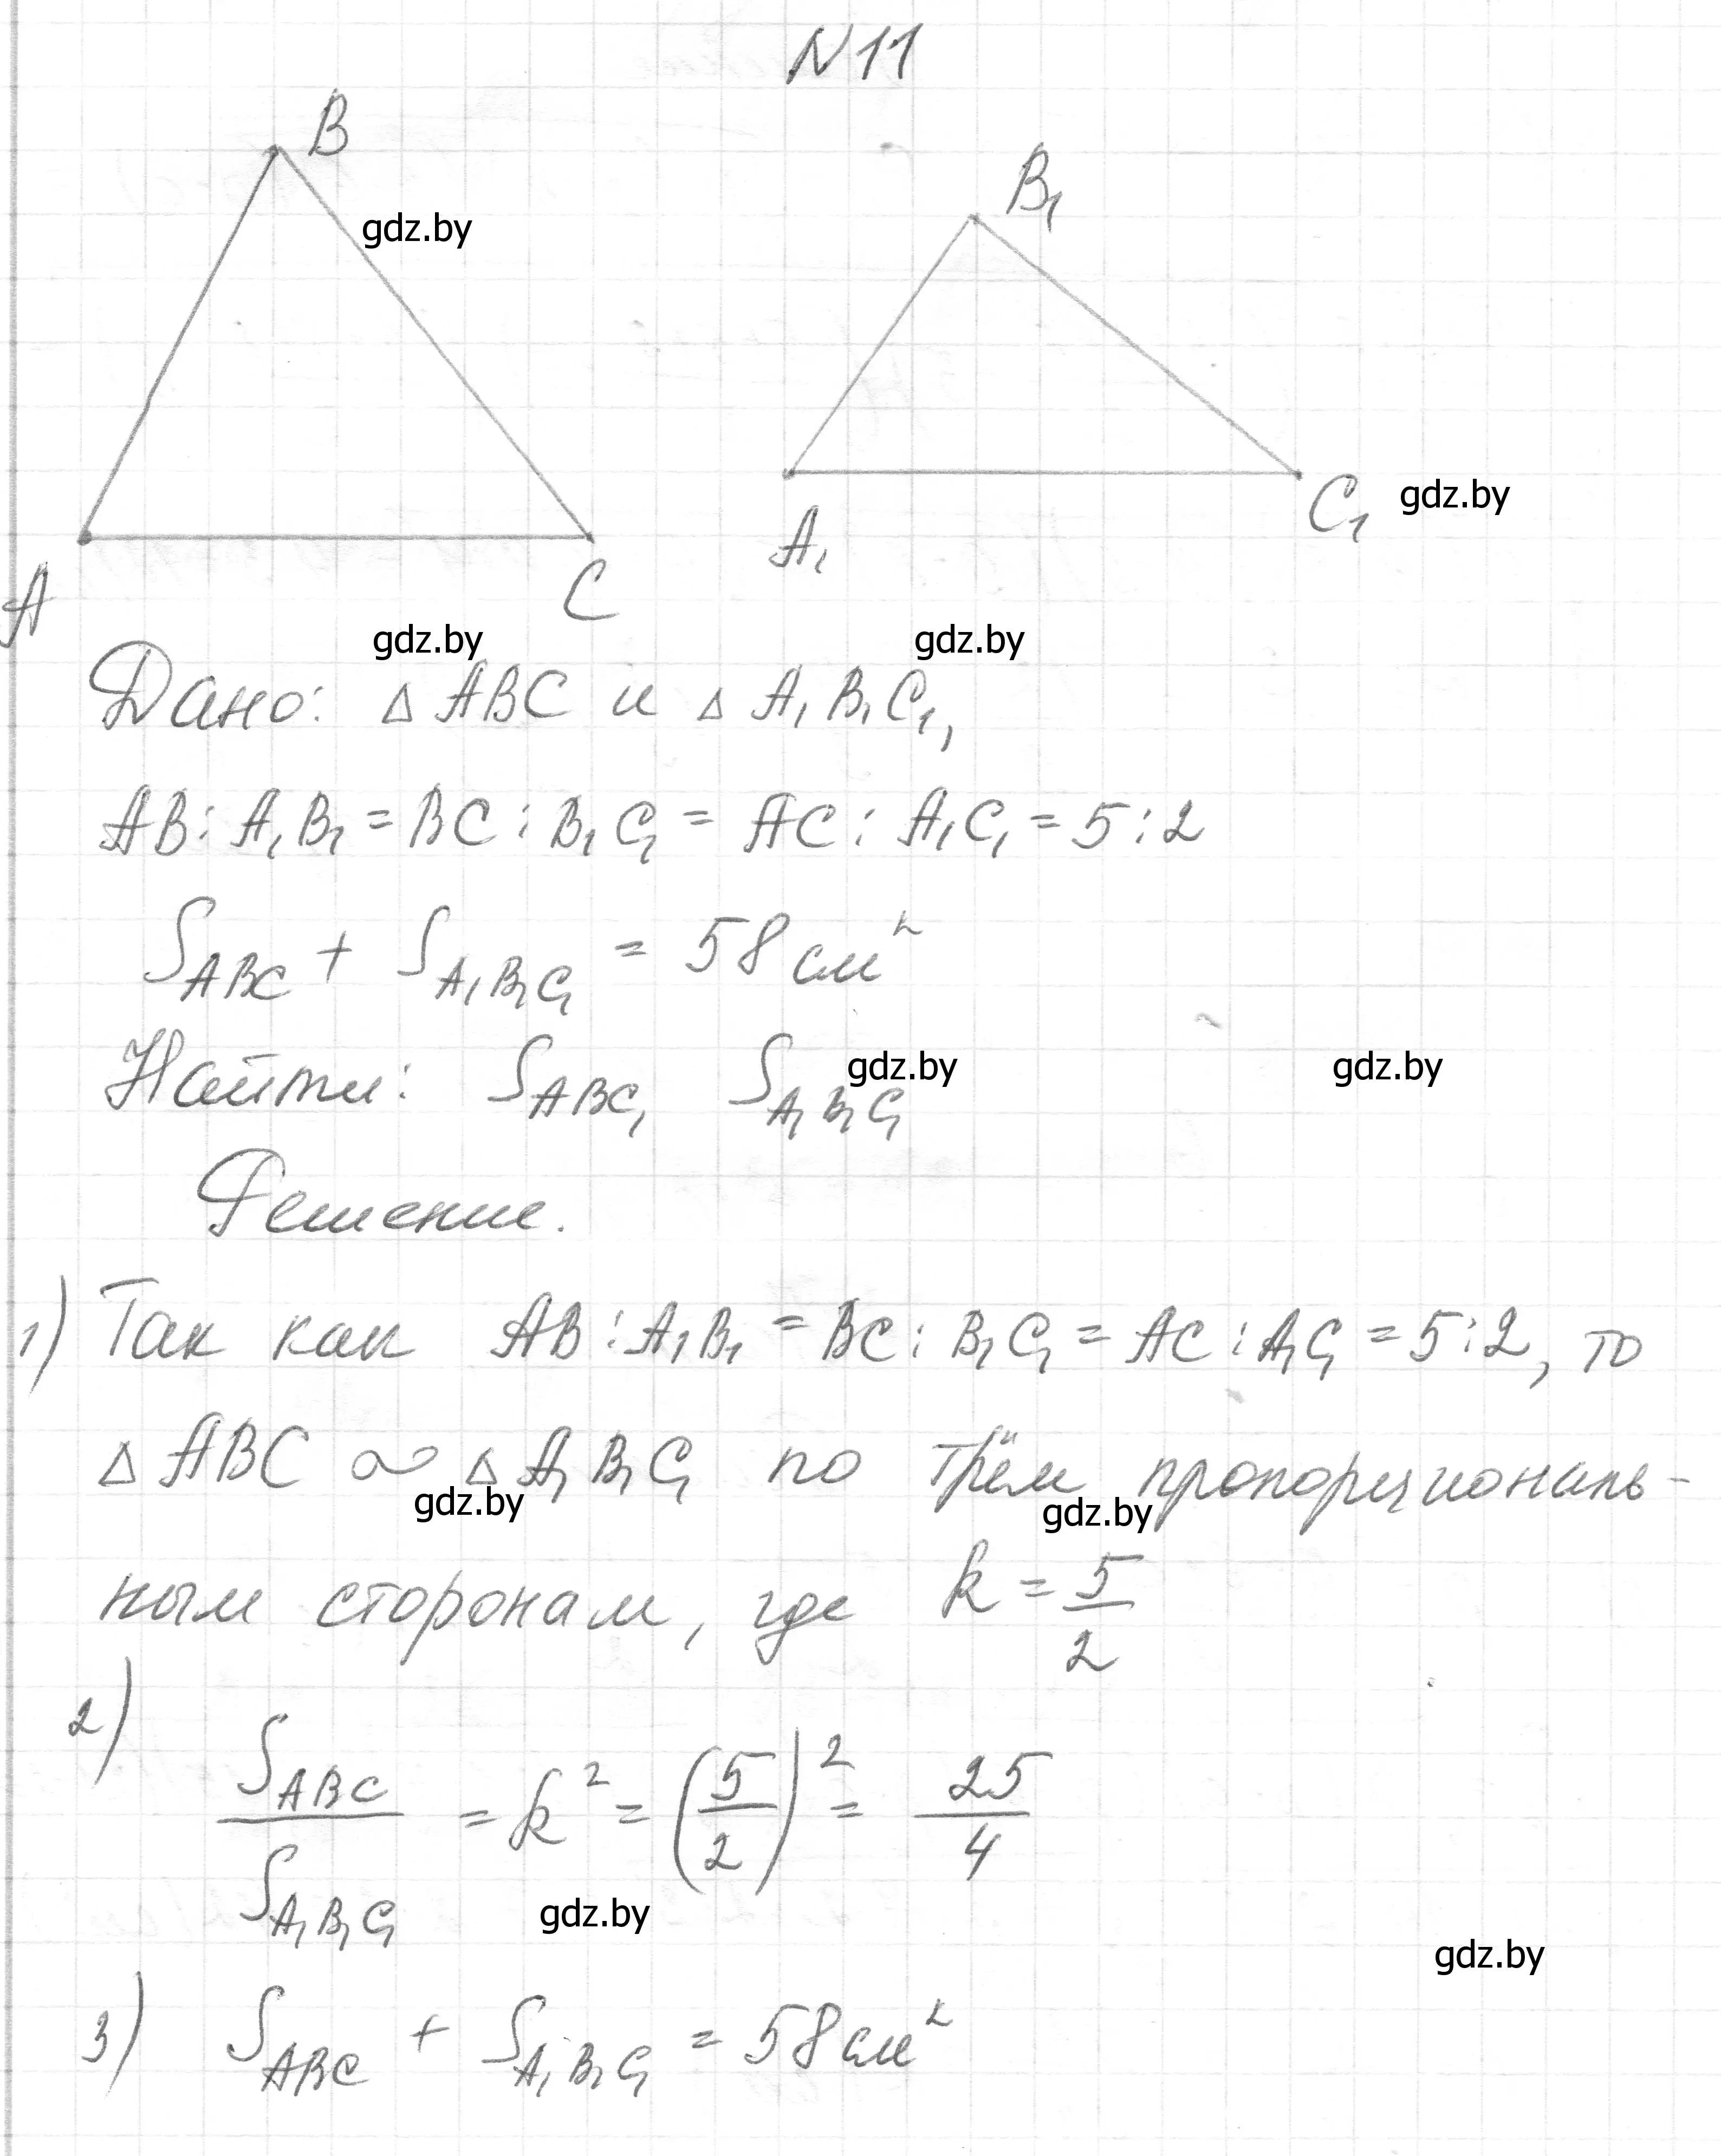 N 11
B
gdz.by
B₁
A
C
A₁
C₁
gdz.by
gdz.by
gdz.by
Дано: △ ABC и △ A₁B₁C₁,
AB : A₁B₁ = BC : B₁C₁ = AC : A₁C₁ = 5 : 2
S_ABC + S_A₁B₁C₁ = 58 см²
Найти: S_ABC, S_A₁B₁C₁
gdz.by
gdz.by
Решение.
1) Так как AB : A₁B₁ = BC : B₁C₁ = AC : A₁C₁ = 5 : 2, то
△ ABC ∾ △ A₁B₁C₁ по трём пропорциональ-
gdz.by
gdz.by
ным сторонам, где k = 5/2
2) S_ABC / S_A₁B₁C₁ = k² = (5/2)² = 25/4
gdz.by
gdz.by
3) S_ABC + S_A₁B₁C₁ = 58 см²